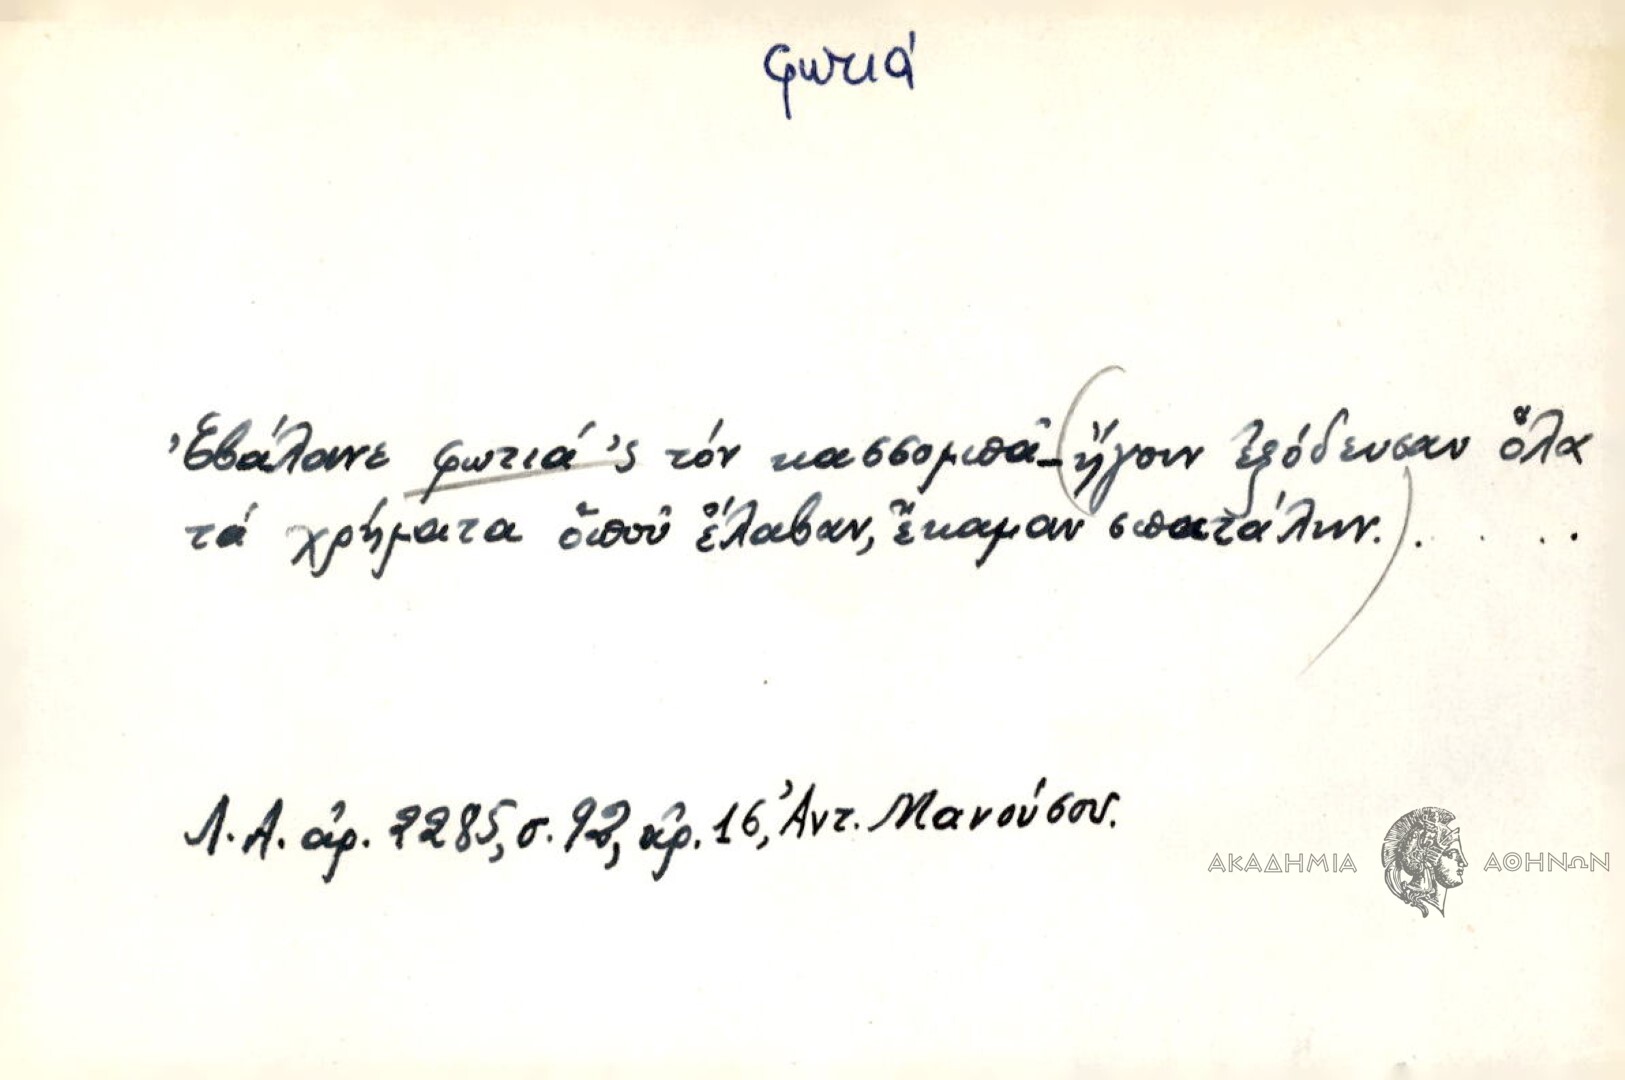 φωτιά
Ἐβάλανε φωτιά 'ς τόν κασσομπᾶ - (ἤγουν ἐξόδευσαν ὅλα
τά χρήματα ὁποῦ ἔλαβαν, ἔκαμαν σπατάλην.) . . . .
Λ. Α. ἀρ. 2285, σ. 92, ἀρ. 16, Ἀντ. Μανούσου.
ΑΚΑΔΗΜΙΑ ΑΘΗΝΩΝ